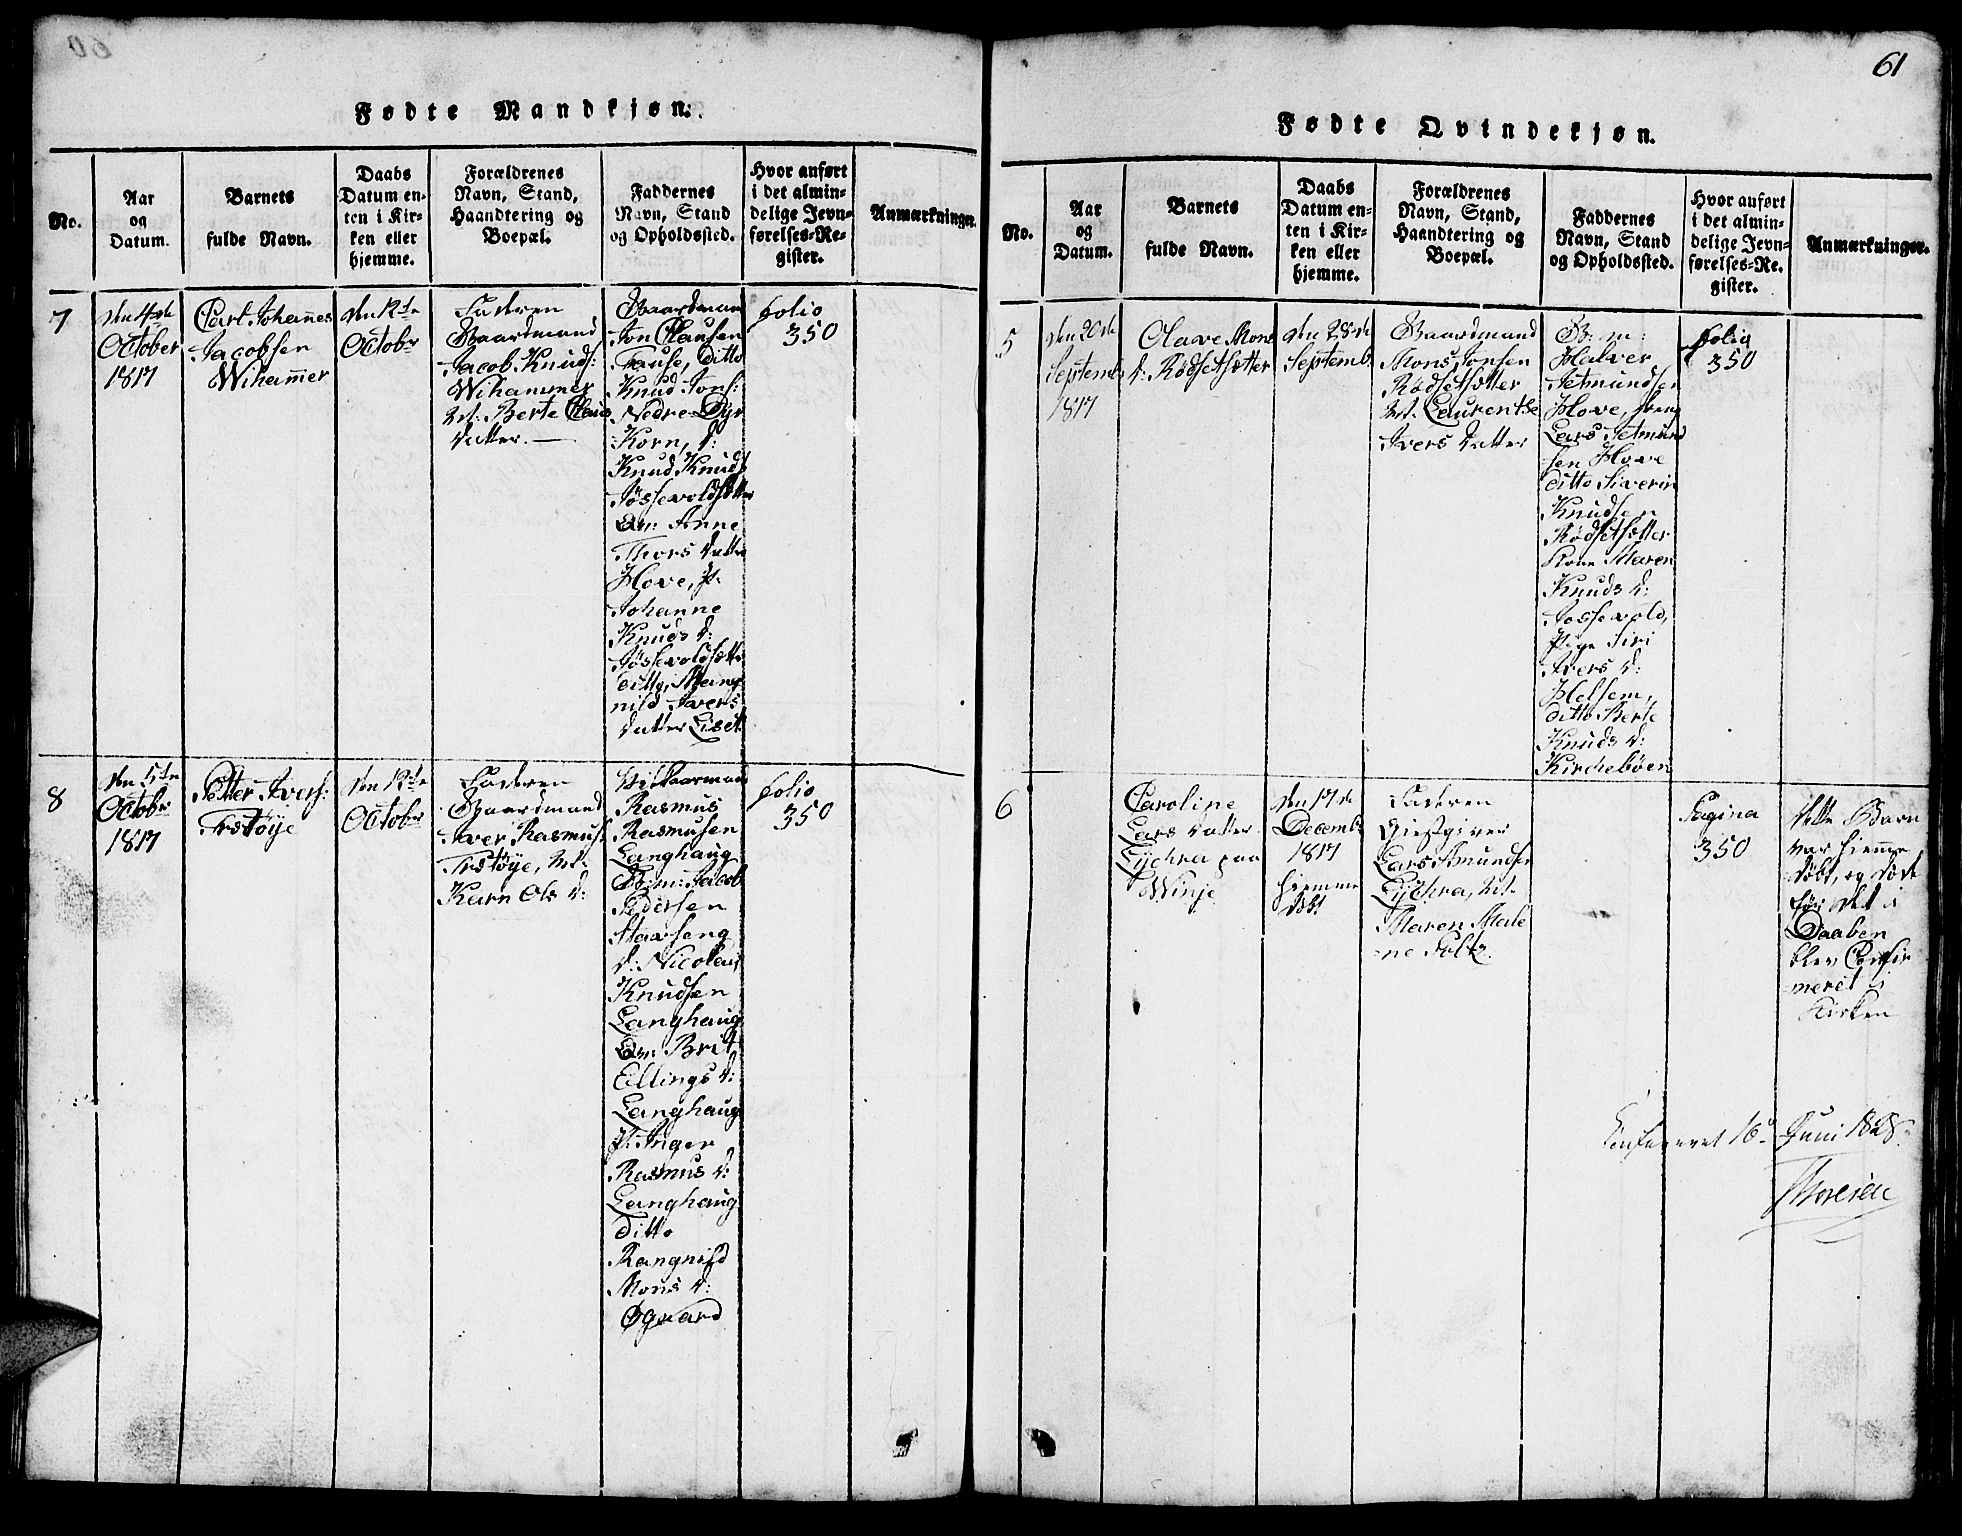 60
Fødte Mandkjøn.
No.
Aar
og
Datum.
Barnets
fulde Navn.
Daabs
Datum en-
ten i Kir-
ken eller
hjemme.
Forældrenes
Navn, Stand,
Haandtering og
Boepæl.
Faddernes
Navn, Stand
og Opholdssted.
Hvor anført
i det almin-
delige Jevn-
førelses-Re-
gister.
Anmærkninger.
7
den 4de
October
1817
Carl Johannes
Jacobsen
Wihammer
den 12te
Octobr
Faderen
Gaardmand
Jacob Knuds:
Wihammer
M: Berte Claus
datter. —
Gaardmand
Jon Clausen
Fause, ditto
Knud Jons:
Nedre Dyr
Korn, d:
Knud Knuds
Jössevoldsætter
Qv: Anne
Thors datter
Hove, P.
Johanne
Knuds d:
Jössevoldsætt
ditto, Mang
nild Ivers
datter Liset
folio
350
8
den 5te
Octobr
1817
Petter Ivers:
Trstöye
den 12te
Octobr
Faderen
Gaardmand
Iver Rasmus:
Trstöye, M:
Karn Ols d:
Rasmus
Rasmusen
Langhaug
G: m: Jacob
Pedersen
Staxseng
d: Nicolaus
Knudsen
Langhaug
Qv: Brit
Ellings d:
Langhaug
P: Inger
Rasmus d:
Langhaug
ditto
Rangnild
Mons d:
Øgaard
folio
350
61
Fødte Qvindekjøn.
No.
Aar
og
Datum.
Barnets
fulde Navn.
Daabs
Datum en-
ten i Kir-
ken eller
hjemme.
Forældrenes
Navn, Stand,
Haandtering og
Boepæl.
Faddernes
Navn, Stand
og Opholdssted.
Hvor anført
i det almin-
delige Jevn-
førelses-Re-
gister.
Anmærkninger.
5
den 20de
Septemb
1817
Olave Mons
d: Rödsetsætter
den 28de
Septemb.
Gaardmand
Mons Jonsen
Rödsetsætter
M. Laurentse
Ivers datter
G: m:
Halver
Jetmundsen
Hove, dreng
Lars Jetmund
sen Hove
ditto Siverin
Knudsen
Rödsetsætter
Kone Maren
Knuds d:
Jossevold,
Pige Siri
Ivers d:
Helsem,
ditto Berte
Knuds d:
Kircheböen
folio
350
6
Caroline
Lars datter
Lychra paa
Winje
den 17de
Decemb
1817
hjemme
döbt
Faderen
Giestgiver
Lars Amundsen
Lychra, M.
Maren Male
ne Holtz.
Pagina
350
dette Barn
var hiemme
döbt, og döde
för det i
Daaben
blev Confir
meret i
Kirken
Confereret 16de Juni 1828.